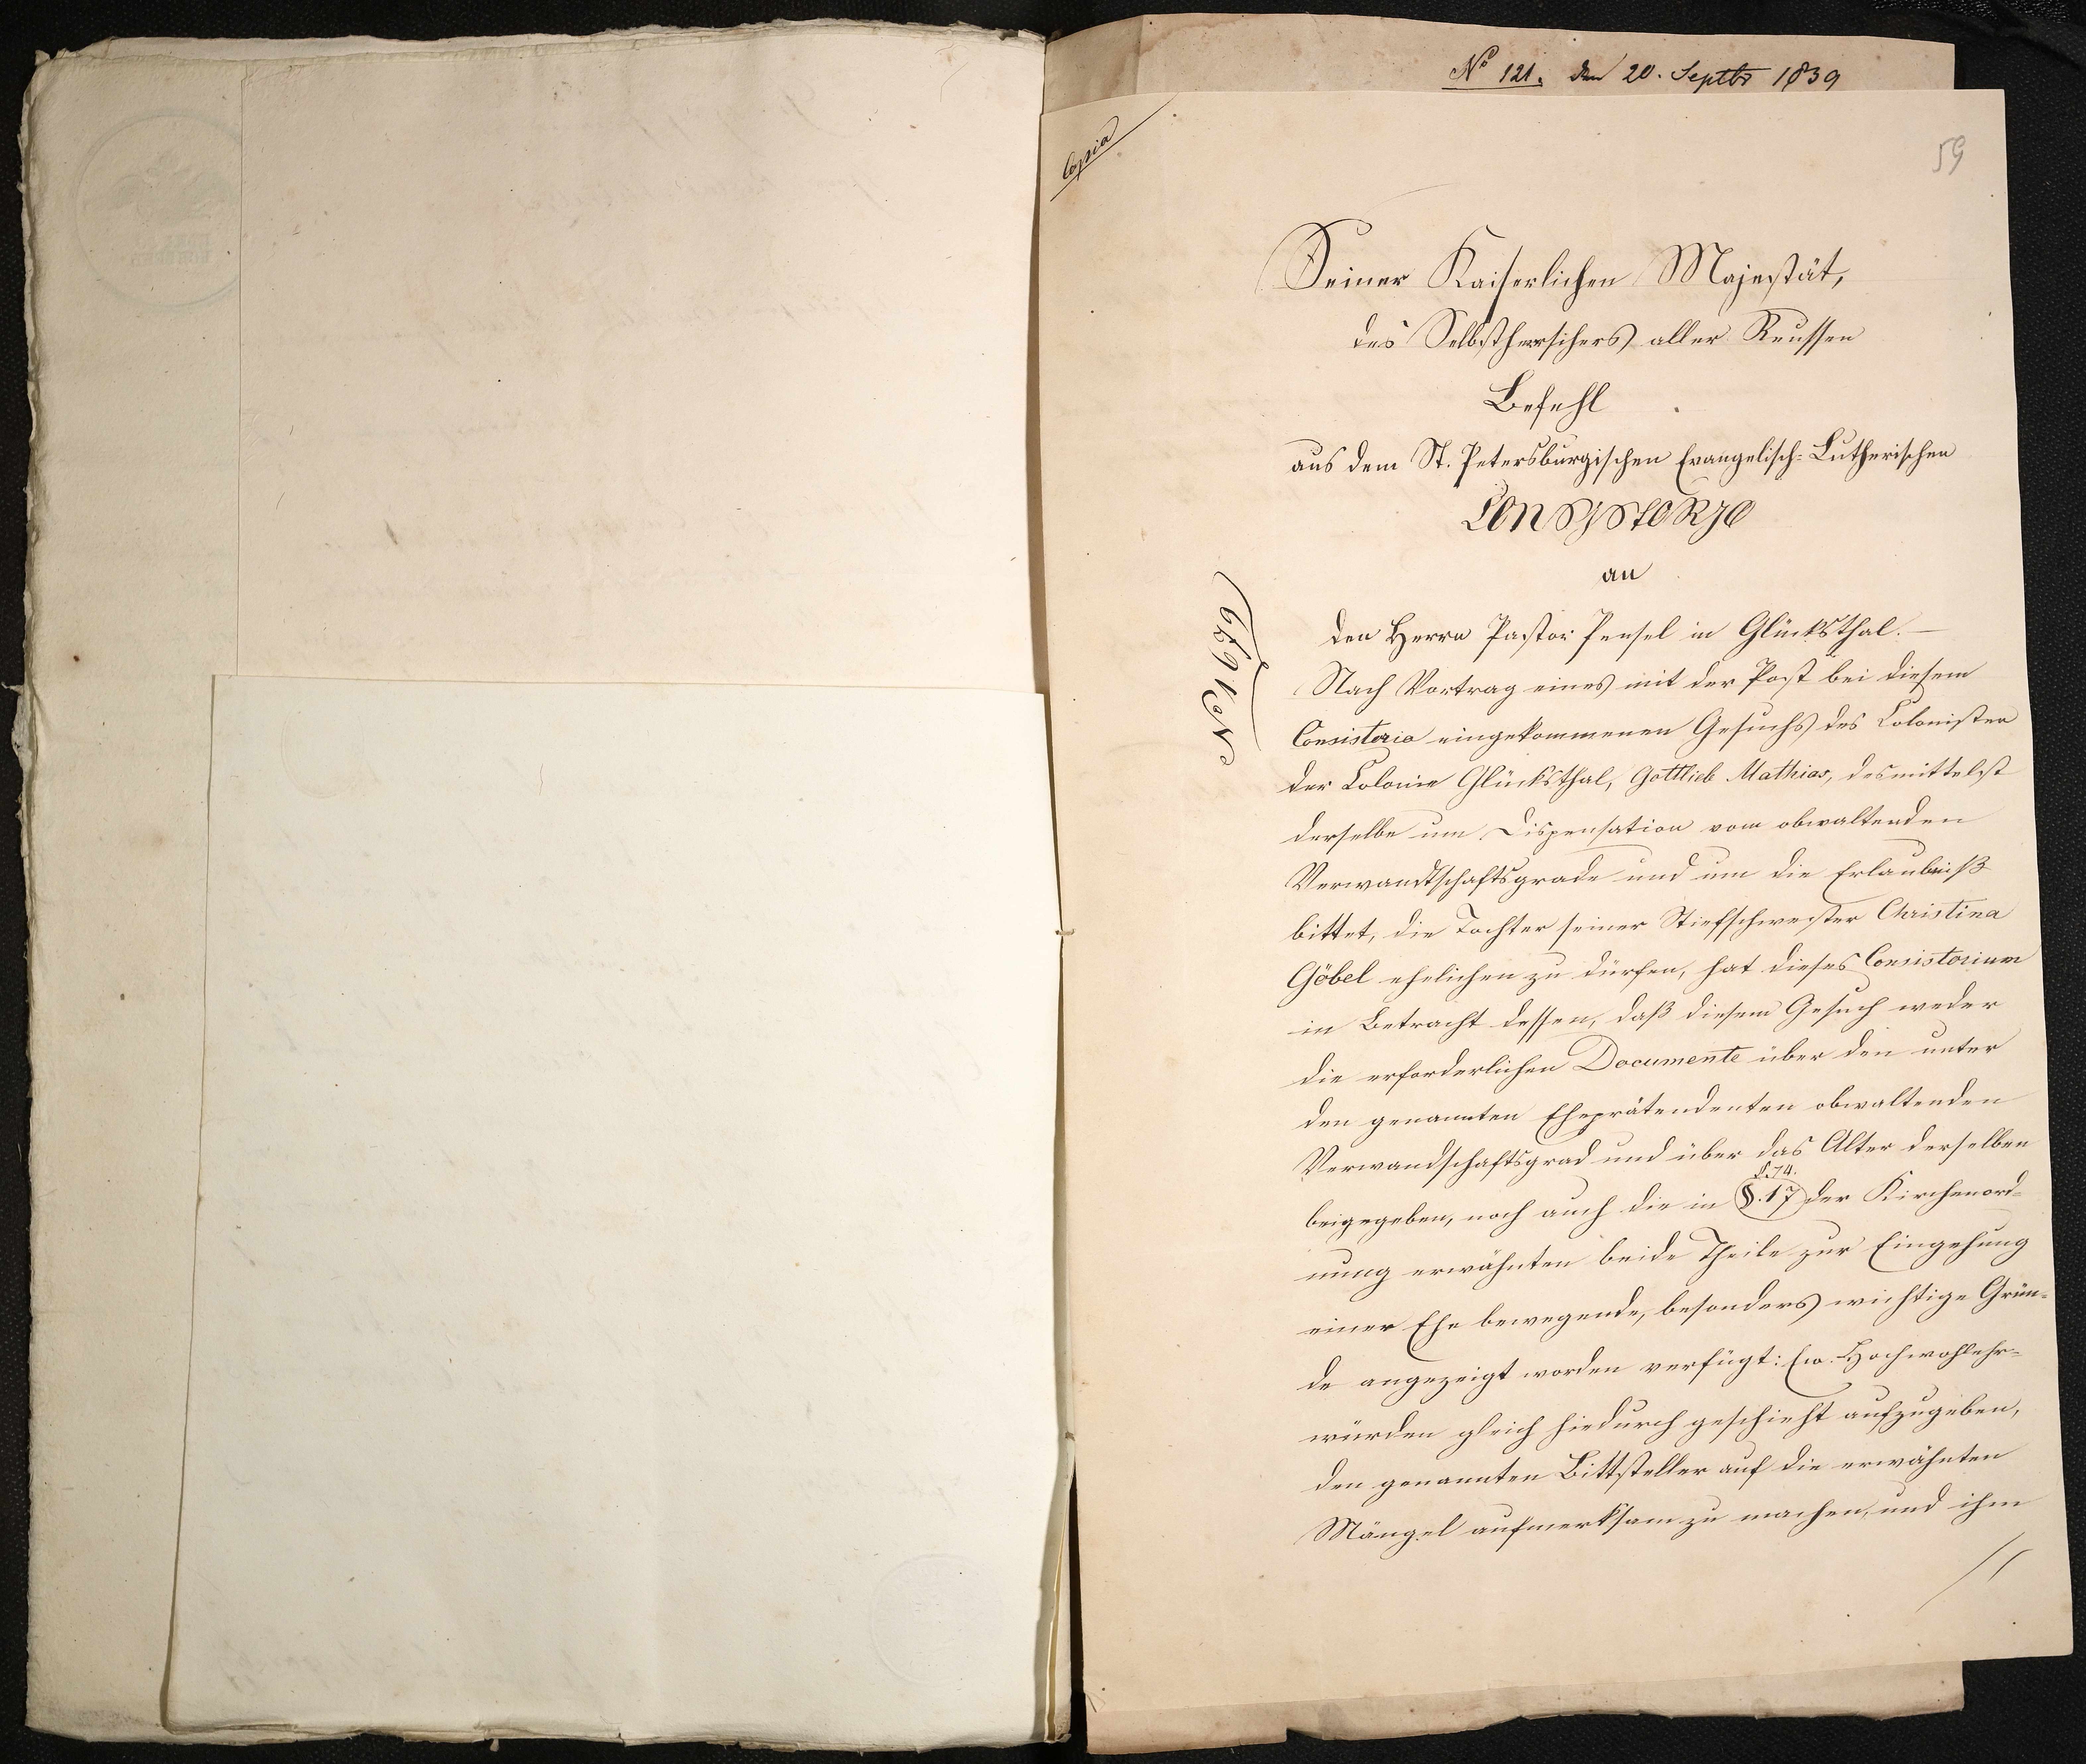 No 121. den 20. Septbr 1839
Copia
59
Seiner Kaiserlichen Majestät,
des Selbstherrschers aller Reussen
Befehl
aus dem St. Petersburgischen Evangelisch-Lutherischen
CONSISTORIO
an
den Herrn Pastor Pensel in Glücksthal.—
Nach Vortrag eines mit der Post bei diesem
Consistorio eingekommenen Gesuchs des Colonisten
der Colonie Glücksthal, Gottlieb Mathias, desmittelst
derselbe um Dispensation vom obwaltenden
Verwandtschaftsgrade und um die Erlaubniß
bittet, die Tochter seiner Stiefschwester Christina
Göbel ehelichen zu dürfen, hat dieses Consistorium
in Betracht dessen, daß diesem Gesuch weder
die erforderlichen Documente über den unter
den genannten Eheprätendenten obwaltenden
Verwandschaftsgrad und über das Alter derselben
§. 74.
beigegeben, noch auch die in §. 17 der Kirchenord-
nung erwähnten beide Theile zur Eingehung
einer Ehe bewegende, besonders wichtige Grün-
de angezeigt worden verfügt: Ew. Hochwohlehr-
würden gleich hiedurch geschieht aufzugeben,
den genannten Bittsteller auf die erwähnten
Mängel aufmerksam zu machen, und ihm